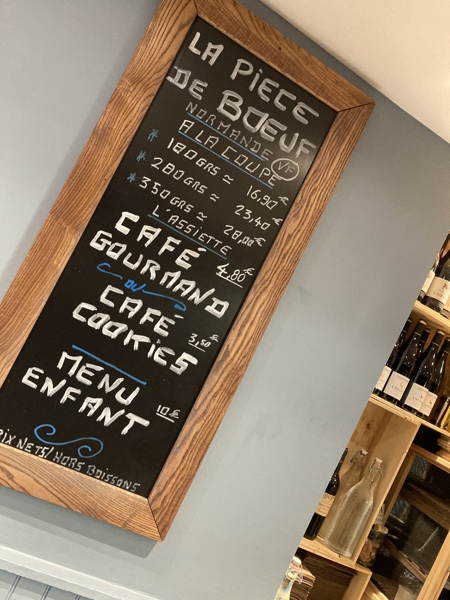 LA PIECE
DE BOEUF
NORMANDE VF
A LA COUPE
* 180GRS ≈ 16,90€
* 280GRS ≈ 23,40€
* 350GRS ≈ 28,00€
L'ASSIETTE
CAFÉ
GOURMAND 4,80€
OU
CAFÉ
COOKIES 3,50€
MENU
ENFANT 10€
PRIX NETS/HORS BOISSONS